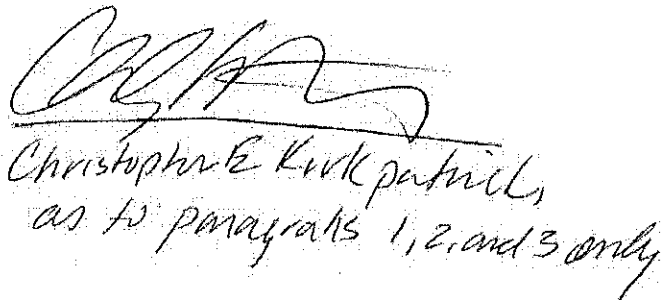 Christopher E Kirkpatrick,
as to paragraphs 1, 2, and 3 only